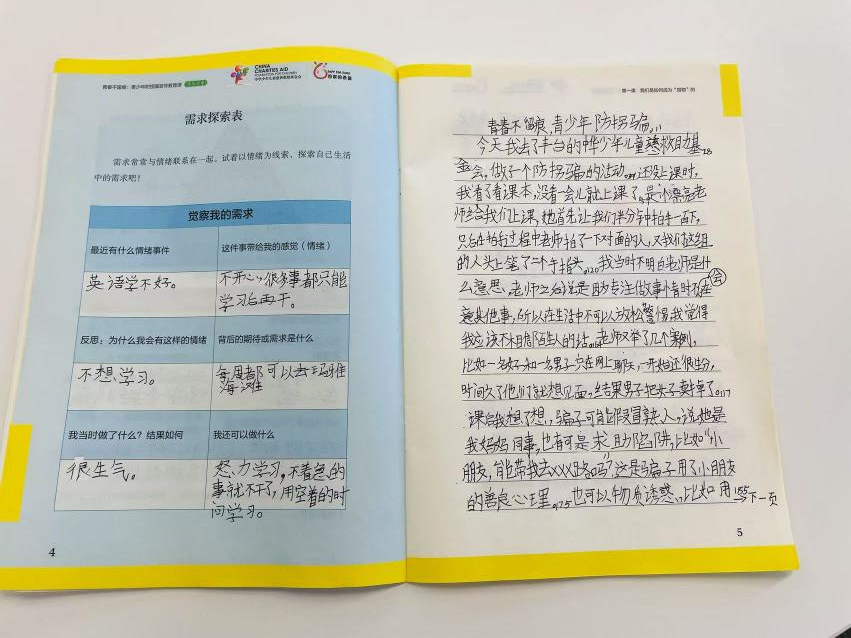 青春不留痕：青少年防拐骗宣传教育课
CHINA
CHARITIES AID
FOUNDATION FOR CHILDREN
中华少年儿童慈善救助基金会
需求探索表
需求常常与情绪联系在一起。试着以情绪为线索，探索自己生活
中的需求吧！
觉察我的需求
最近有什么情绪事件
这件事带给我的感觉（情绪）
英语学不好。
不开心，很多事都只能
学习后再干。
反思：为什么我会有这样的情绪
背后的期待或需求是什么
不想学习。
每周都可以去玛雅
海滩
我当时做了什么？结果如何
我还可以做什么
很生气。
努力学习，不着急的
事就不干了，用空着的时
间学习。
4
第一课 我们是如何成为“猎物”的
青春不留痕，青少年防拐骗。
今天我去了丰台的中华少年儿童慈善救助基
金会，做了个防拐骗的活动。还没上课时，
我看了看课本，没看一会儿就上课了。是个漂亮老
师给我们上课，她首先让我们半分钟拍手一百下，
只是在拍的过程中老师拍了一下对面的人，又我们这组
的人头上笔了二个手指头。我当时不明白老师是什
么意思，老师之后说是因为专注做事情时不会在
意其他事，所以在生活中不可以放松警惕，我觉得
我应该不相信陌生人的话。老师又举了几个案例，
比如一名女子和一名男子穴在网上聊天，一开始还很生分，
时间久了他们就想见面，结果男子把女子卖掉了。117
课后我想了想，骗子可能假冒熟人，说她是
我妈妈同事，也有可是求助陷阱，比如“小
朋友，能带我去XXX路吗？”这是骗子用了小朋友
的善良心理。也可以牛物质诱惑，比如用
155下一页
5